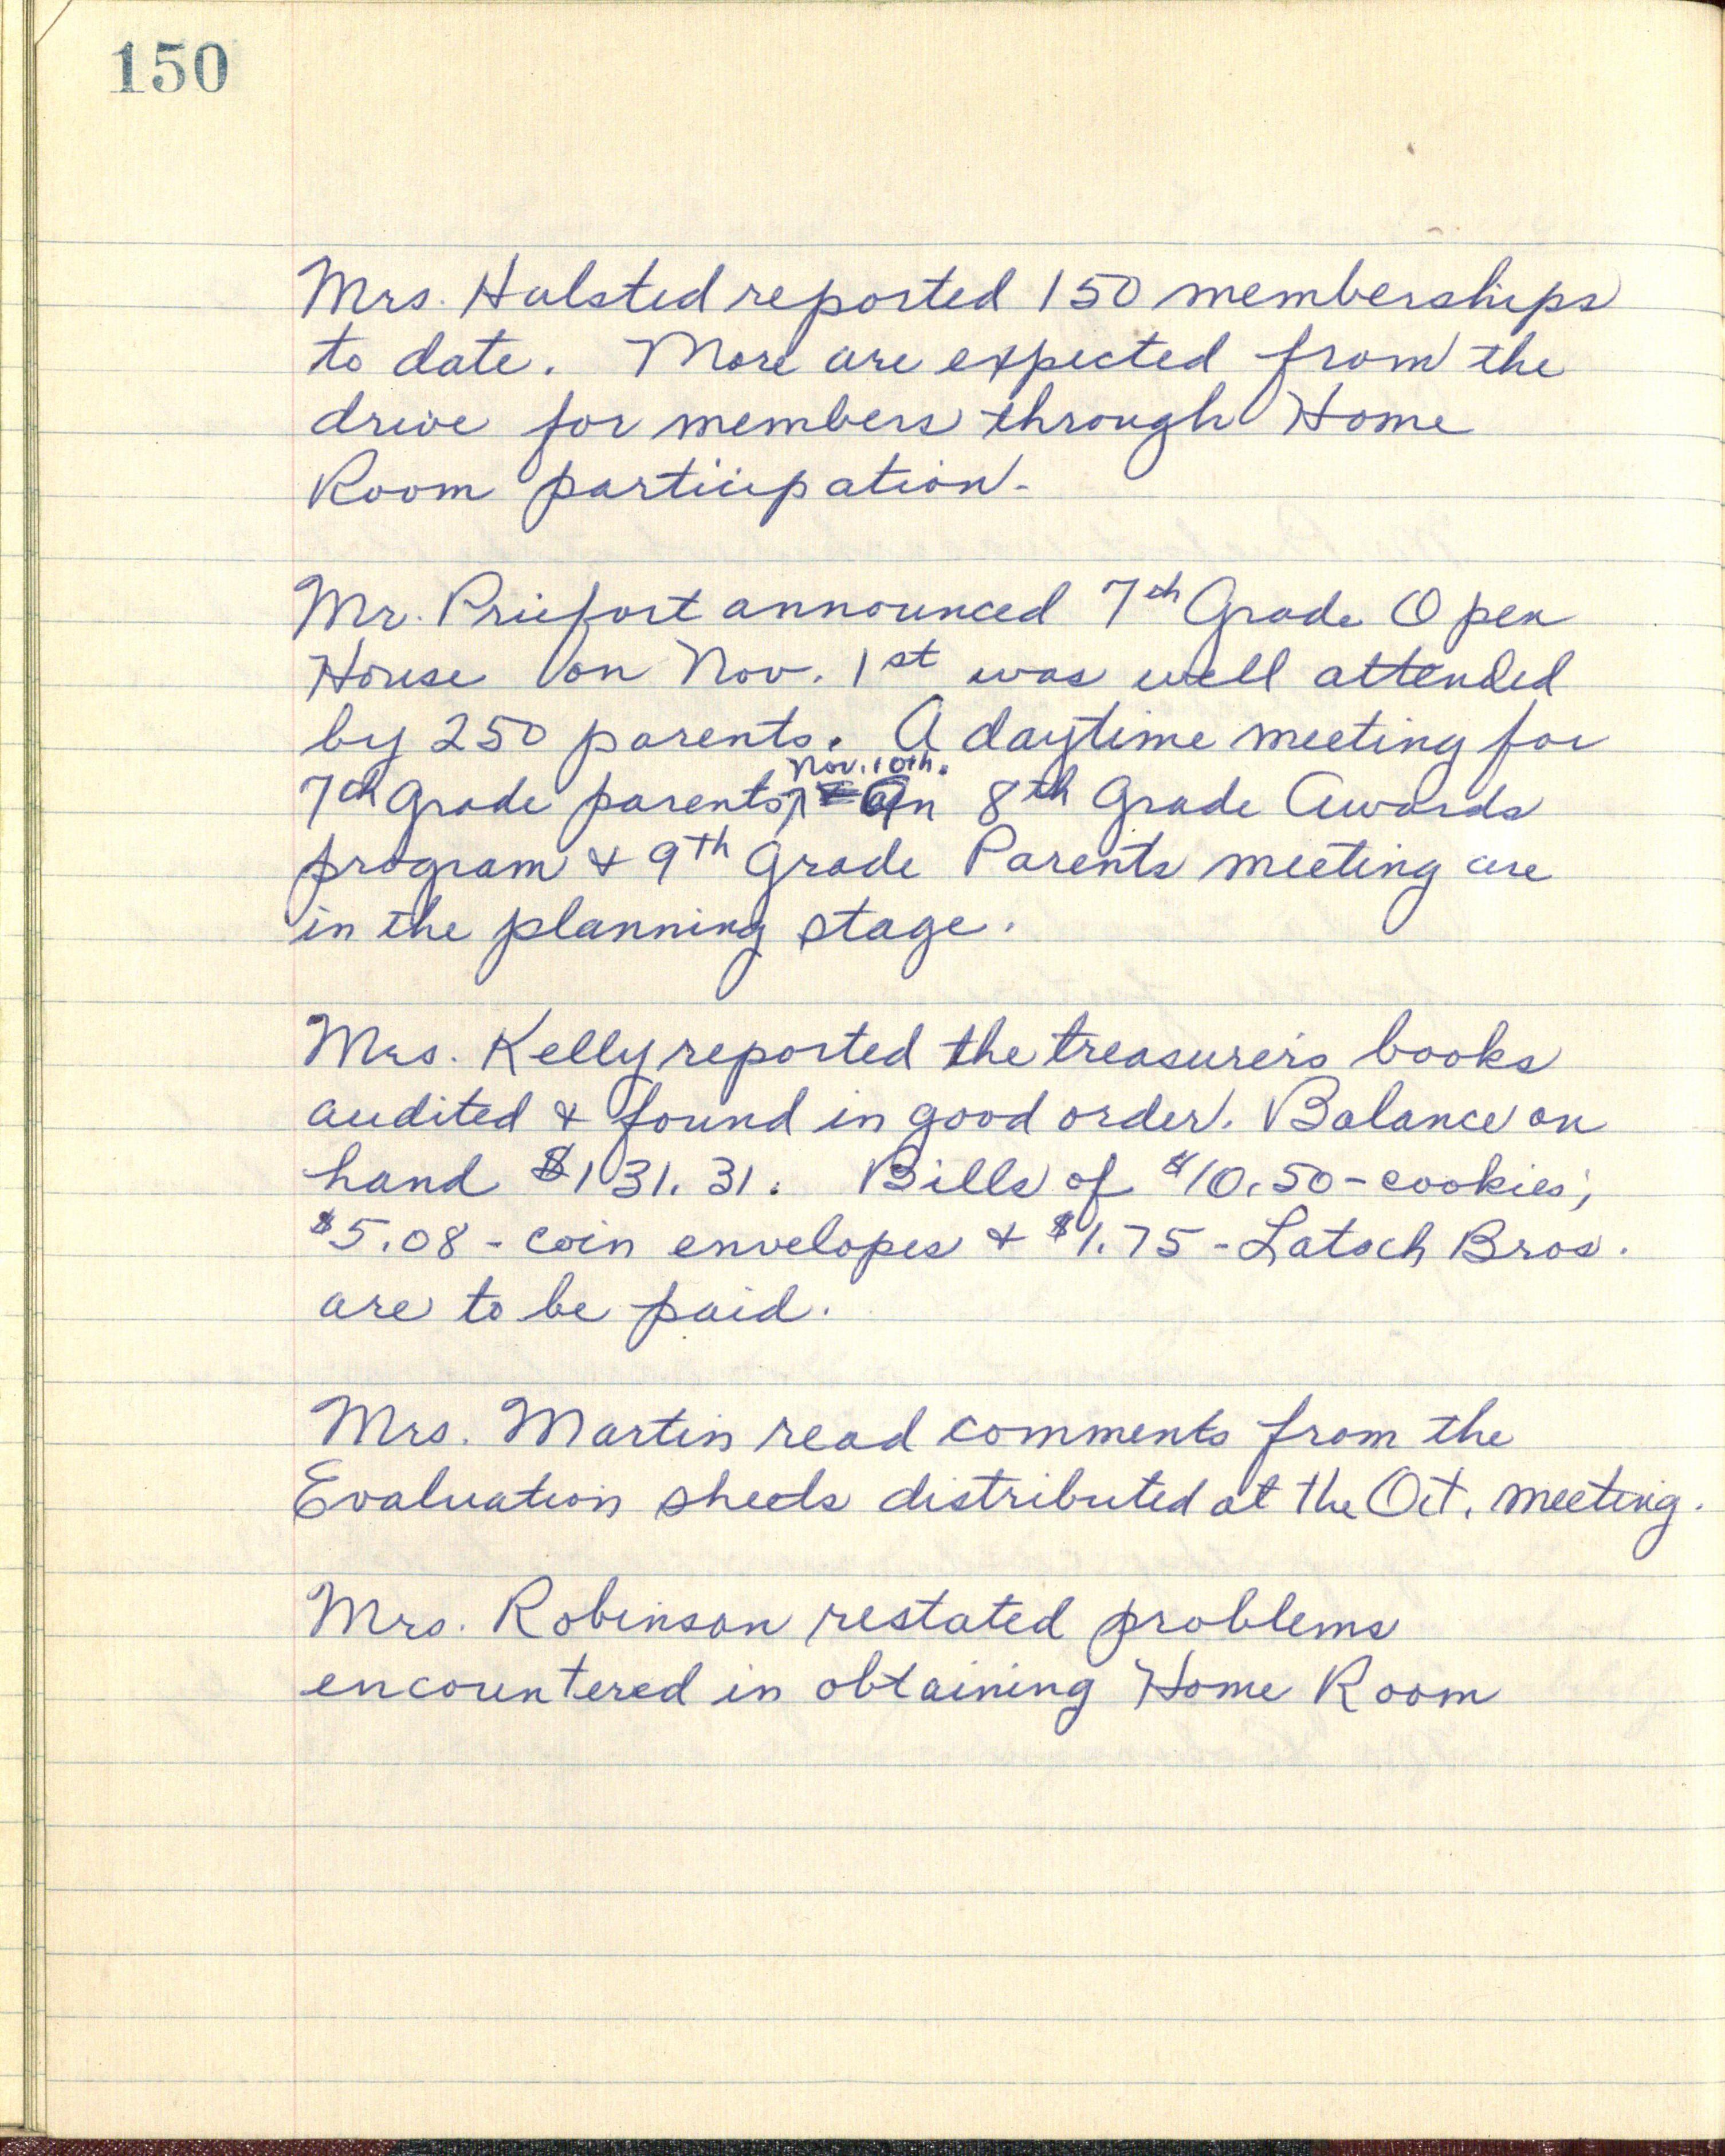 150
Mrs. Halsted reported 150 memberships
to date. More are expected from the
drive for members through Home
Room participation.
Mr. Priefort announced 7th Grade Open
House on Nov. 1st was well attended
by 250 parents. A daytime meeting for
Nov. 10th.
7th Grade parents, An 8th Grade Awards
program & 9th Grade Parents meeting are
in the planning stage.
Mrs. Kelly reported the treasurer's books
audited & found in good order. Balance on
hand $131.31. Bills of $10.50 - cookies;
$5.08 - coin envelopes & $1.75 - Latsch Bros.
are to be paid.
Mrs. Martin read comments from the
Evaluation sheets distributed at the Oct. meeting.
Mrs. Robinson restated problems
encountered in obtaining Home Room